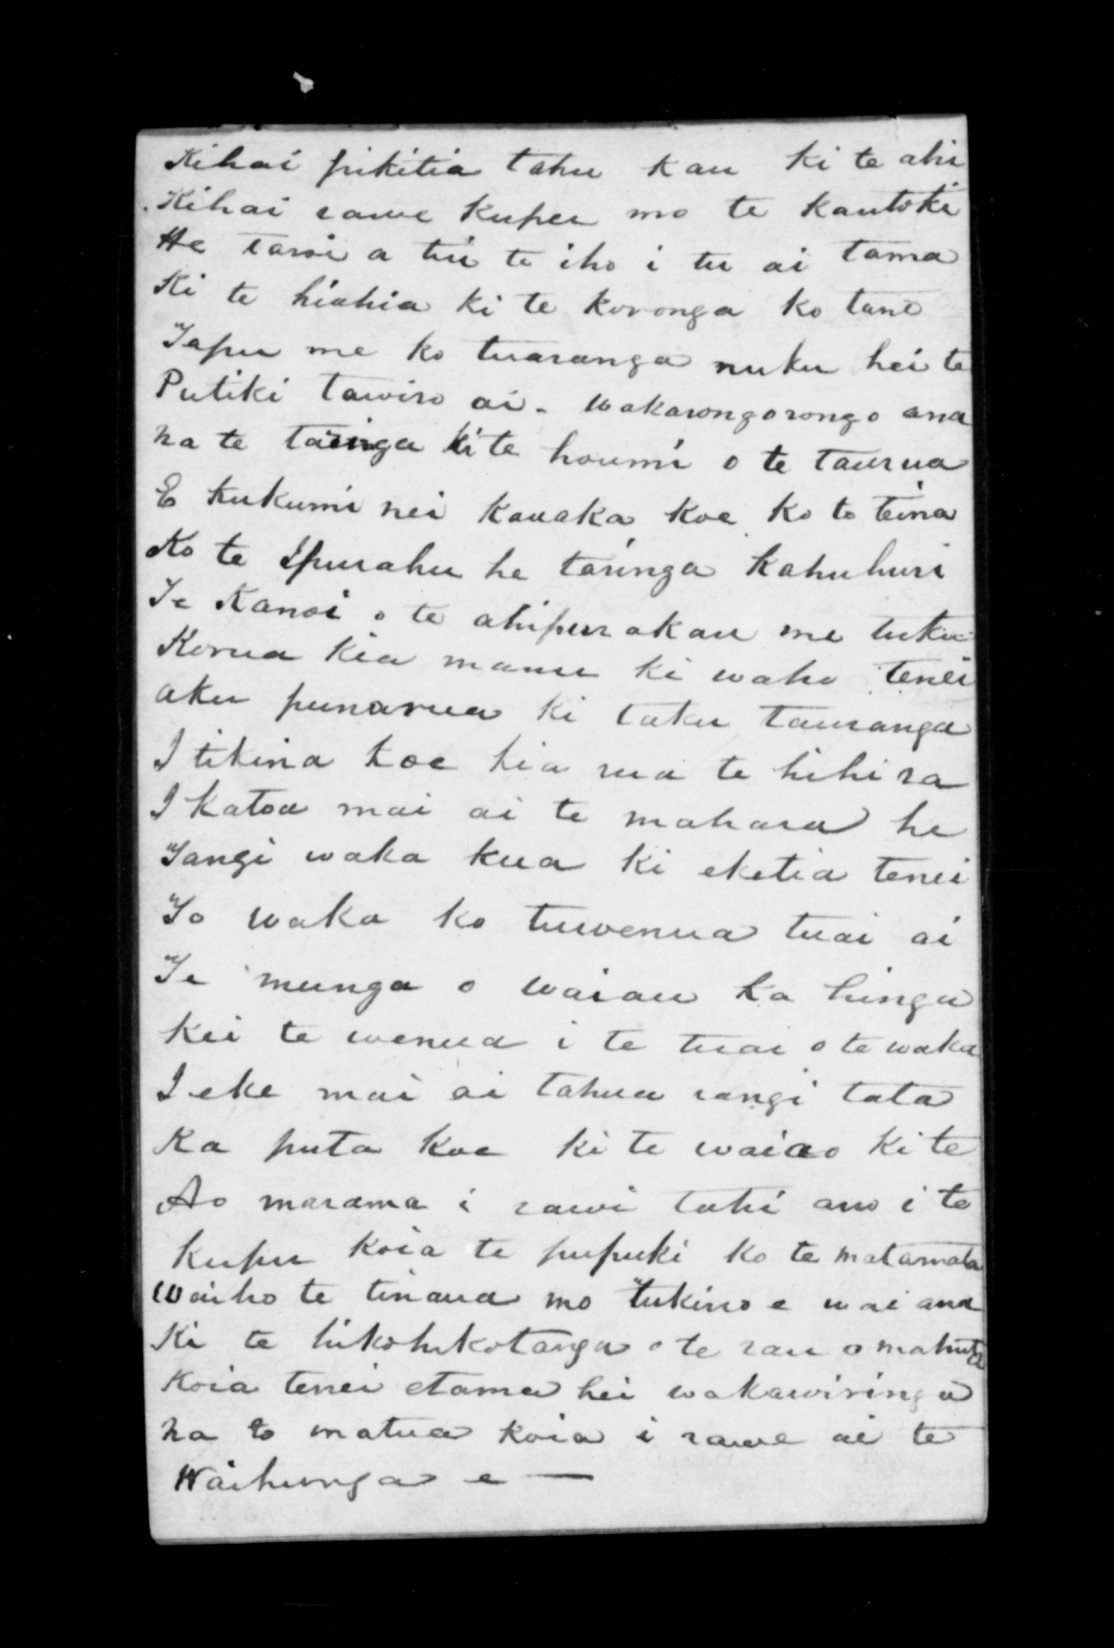 Kihai pikitia tahu kau ki te ahi
Kihai rawe kupeu mo te kautoki
He taroi a tiu te iho i tu ai tama
Ki te hiahia ki te koronga ko tane
Tapu me ko tuaranga nuku hei te
Putiki tawiro ai. wakarongorongo ana
na te taringa ki te houmi o te taurua
E kukumi nei kauaka koe ko to teina
Ko te Ipurahu he taringa kahuhuri
Te Kanoi o te ahipurakau me tuku
Korua kia manu ki waho tenei
aku punarua ki taku tauranga
I tikina koe kia rua te hihi ra
I katoa mai ai te mahara he
Tangi waka kua ki eketia tenei
To waka ko tuwenua tuai ai
Te munga o waiau ka hinga
kei te wenua i te tuai o te waka
I eke mai ai tahua rangi tata
Ka puta koe ki te waiao ki te
Ao marama i rawi tahi ano i te
kupu koia te pupuki ko te matamata
Waiho te tinana mo tukino e wai ana
Ki te hikohikotanga o te rau o mahuta
Koia tenei etama hei wakawiringa
na to matua koia i rawe ai te
Waihunga e —